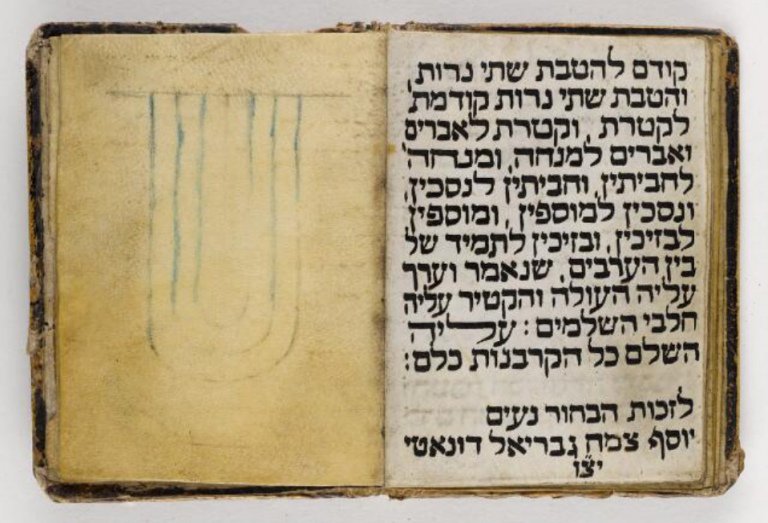 קודם להטבת שתי נרות,
והטבת שתי נרות קודמת
לקטרת, וקטרת לאברים
ואברים למנחה, ומנחה
לחביתין, וחביתין לנסכין,
ונסכין למוספין, ומוספין
לבזיכין, ובזיכין לתמיד של
בין הערבים, שנאמר וערך
עליה העולה והקטיר עליה
חלבי השלמים: עליה
השלם כל הקרבנות כלם:
לזכות הבחור נעים
יוסף צמח גבריאל דונאטי
יצ״ו